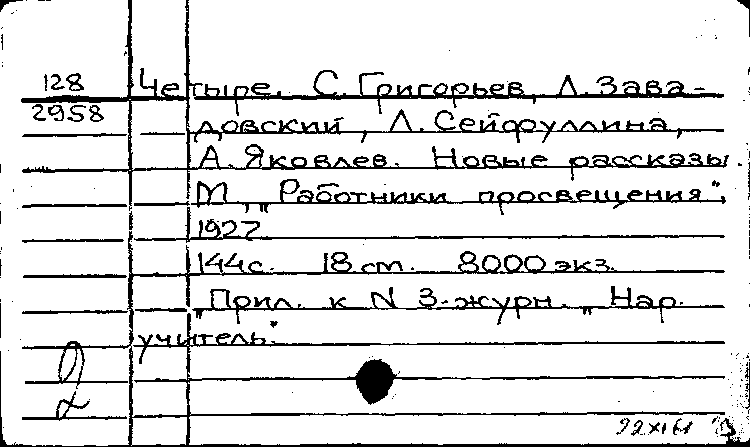 128
2958
Четыре. С. Григорьев, Л. Зава-
довский, Л. Сейфуллина,
А. Яковлев. Новые рассказы.
М, „Работники просвещения",
1927
144 с. 18 ст. 8000 экз.
„Прил. к N 3-журн. „Нар.
учитель"
2
22 XI 61